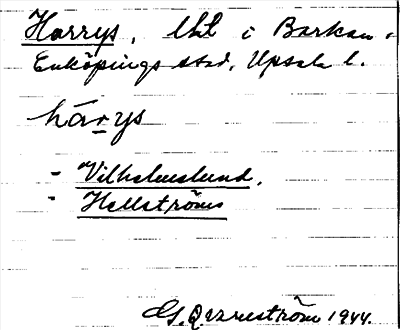 Harrys, lht i Barkan.
Enköpings stad, Upsala l.
härys
- Vilhelmslund.
- Hellströms
1944.